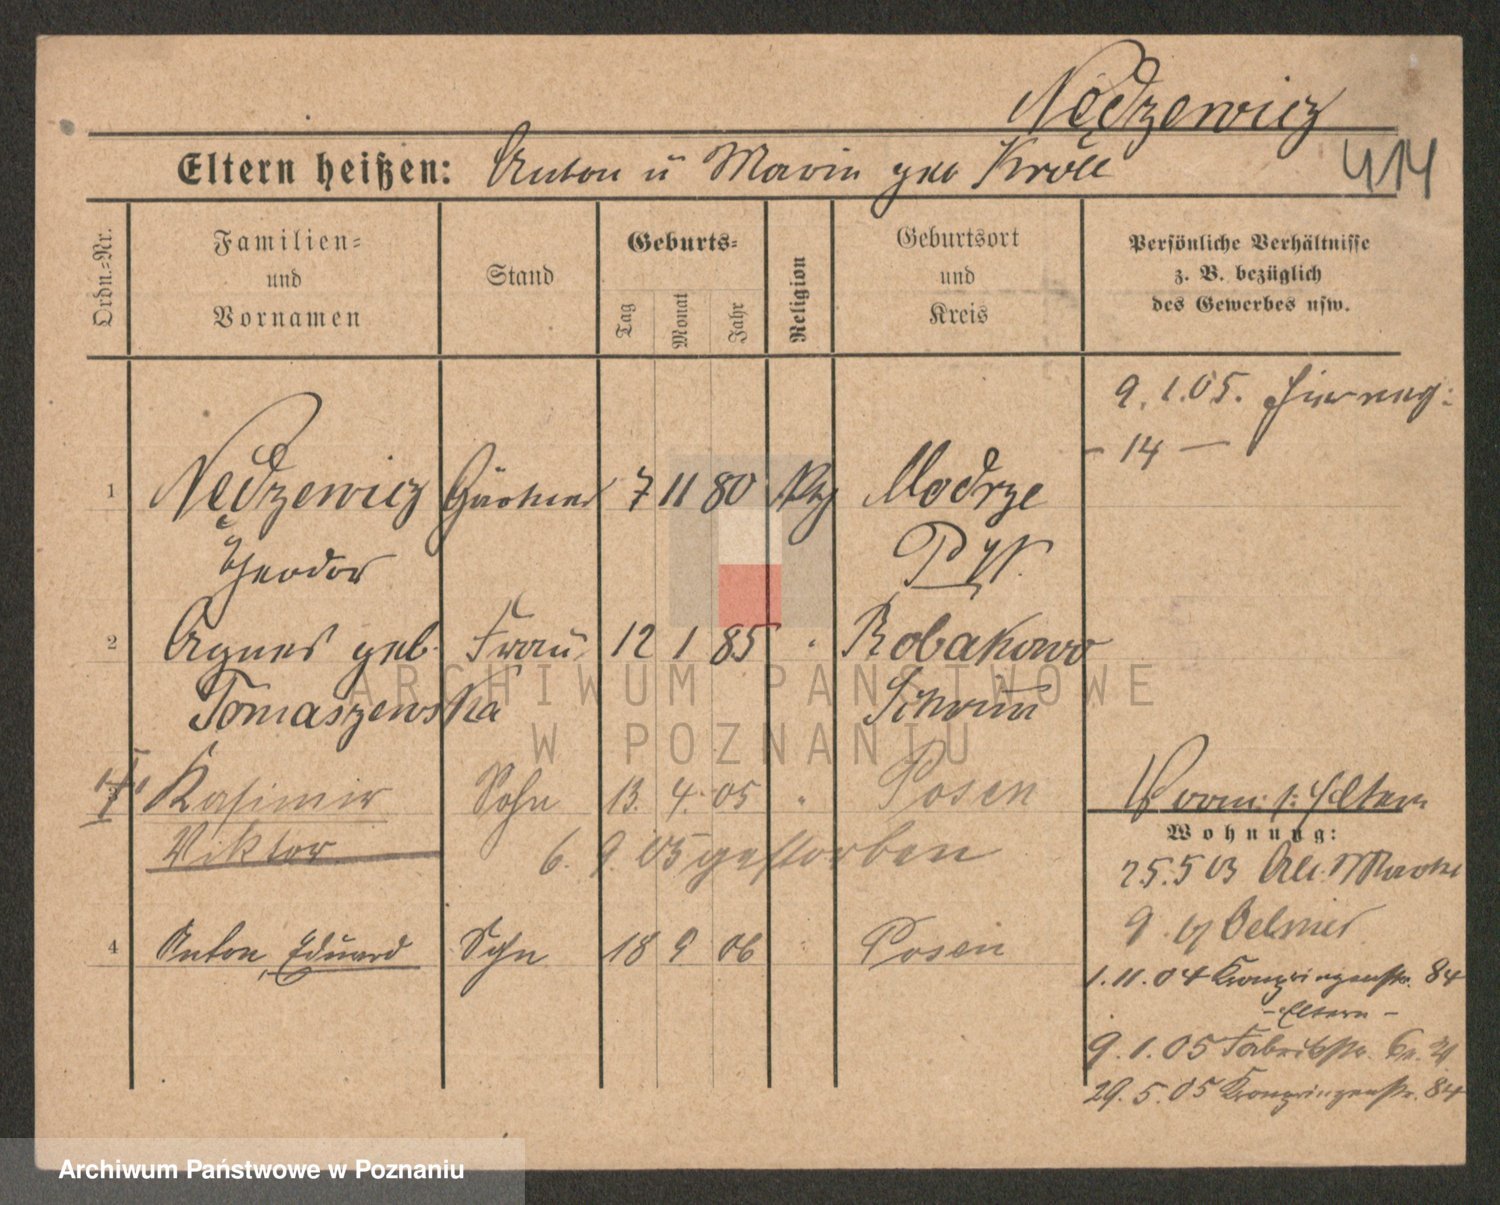 Nędzewicz
414
Eltern heißen: Anton u Marin geb Król
Ordn.-Nr.
Familien-
und
Vornamen
Stand
Geburts-
Tag
Monat
Jahr
Religion
Geburtsort
und
Kreis
Persönliche Verhältnisse
z. B. bezüglich
des Gewerbes usw.
9. 1. 05.
- 14 -
1 Nędzewicz Gärtner 7 11 80 Modrze
Theodor P. W.
2 Agnes geb. Frau 12 1 85 " Robakowo
Tomaszewska Schrim
3 Kasimir Sohn 13. 4. 05 " Posen
Viktor 6. 9. 05 gestorben
Eltern
Wohnung:
25. 5 03
9. b/
4 Anton Eduard Sohn 18 9 06 Posen
1. 11. 04 Kronprinzenstr. 84
- Eltern -
9. 1. 05 Fabrikstr.
29. 5. 05 Kronprinzenstr. 84
ARCHIWUM PAŃSTWOWE
W POZNANIU
Archiwum Państwowe w Poznaniu